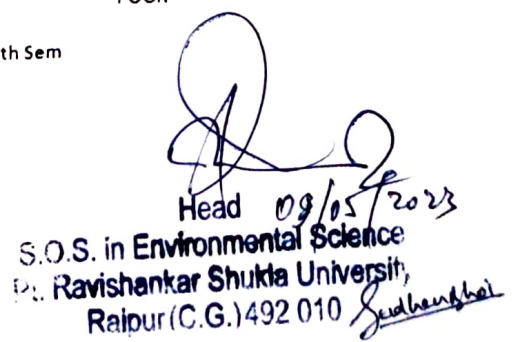 th Sem
Head 09/05/2023
S.O.S. in Environmental Science
Pt. Ravishankar Shukla University,
Raipur (C.G.) 492 010